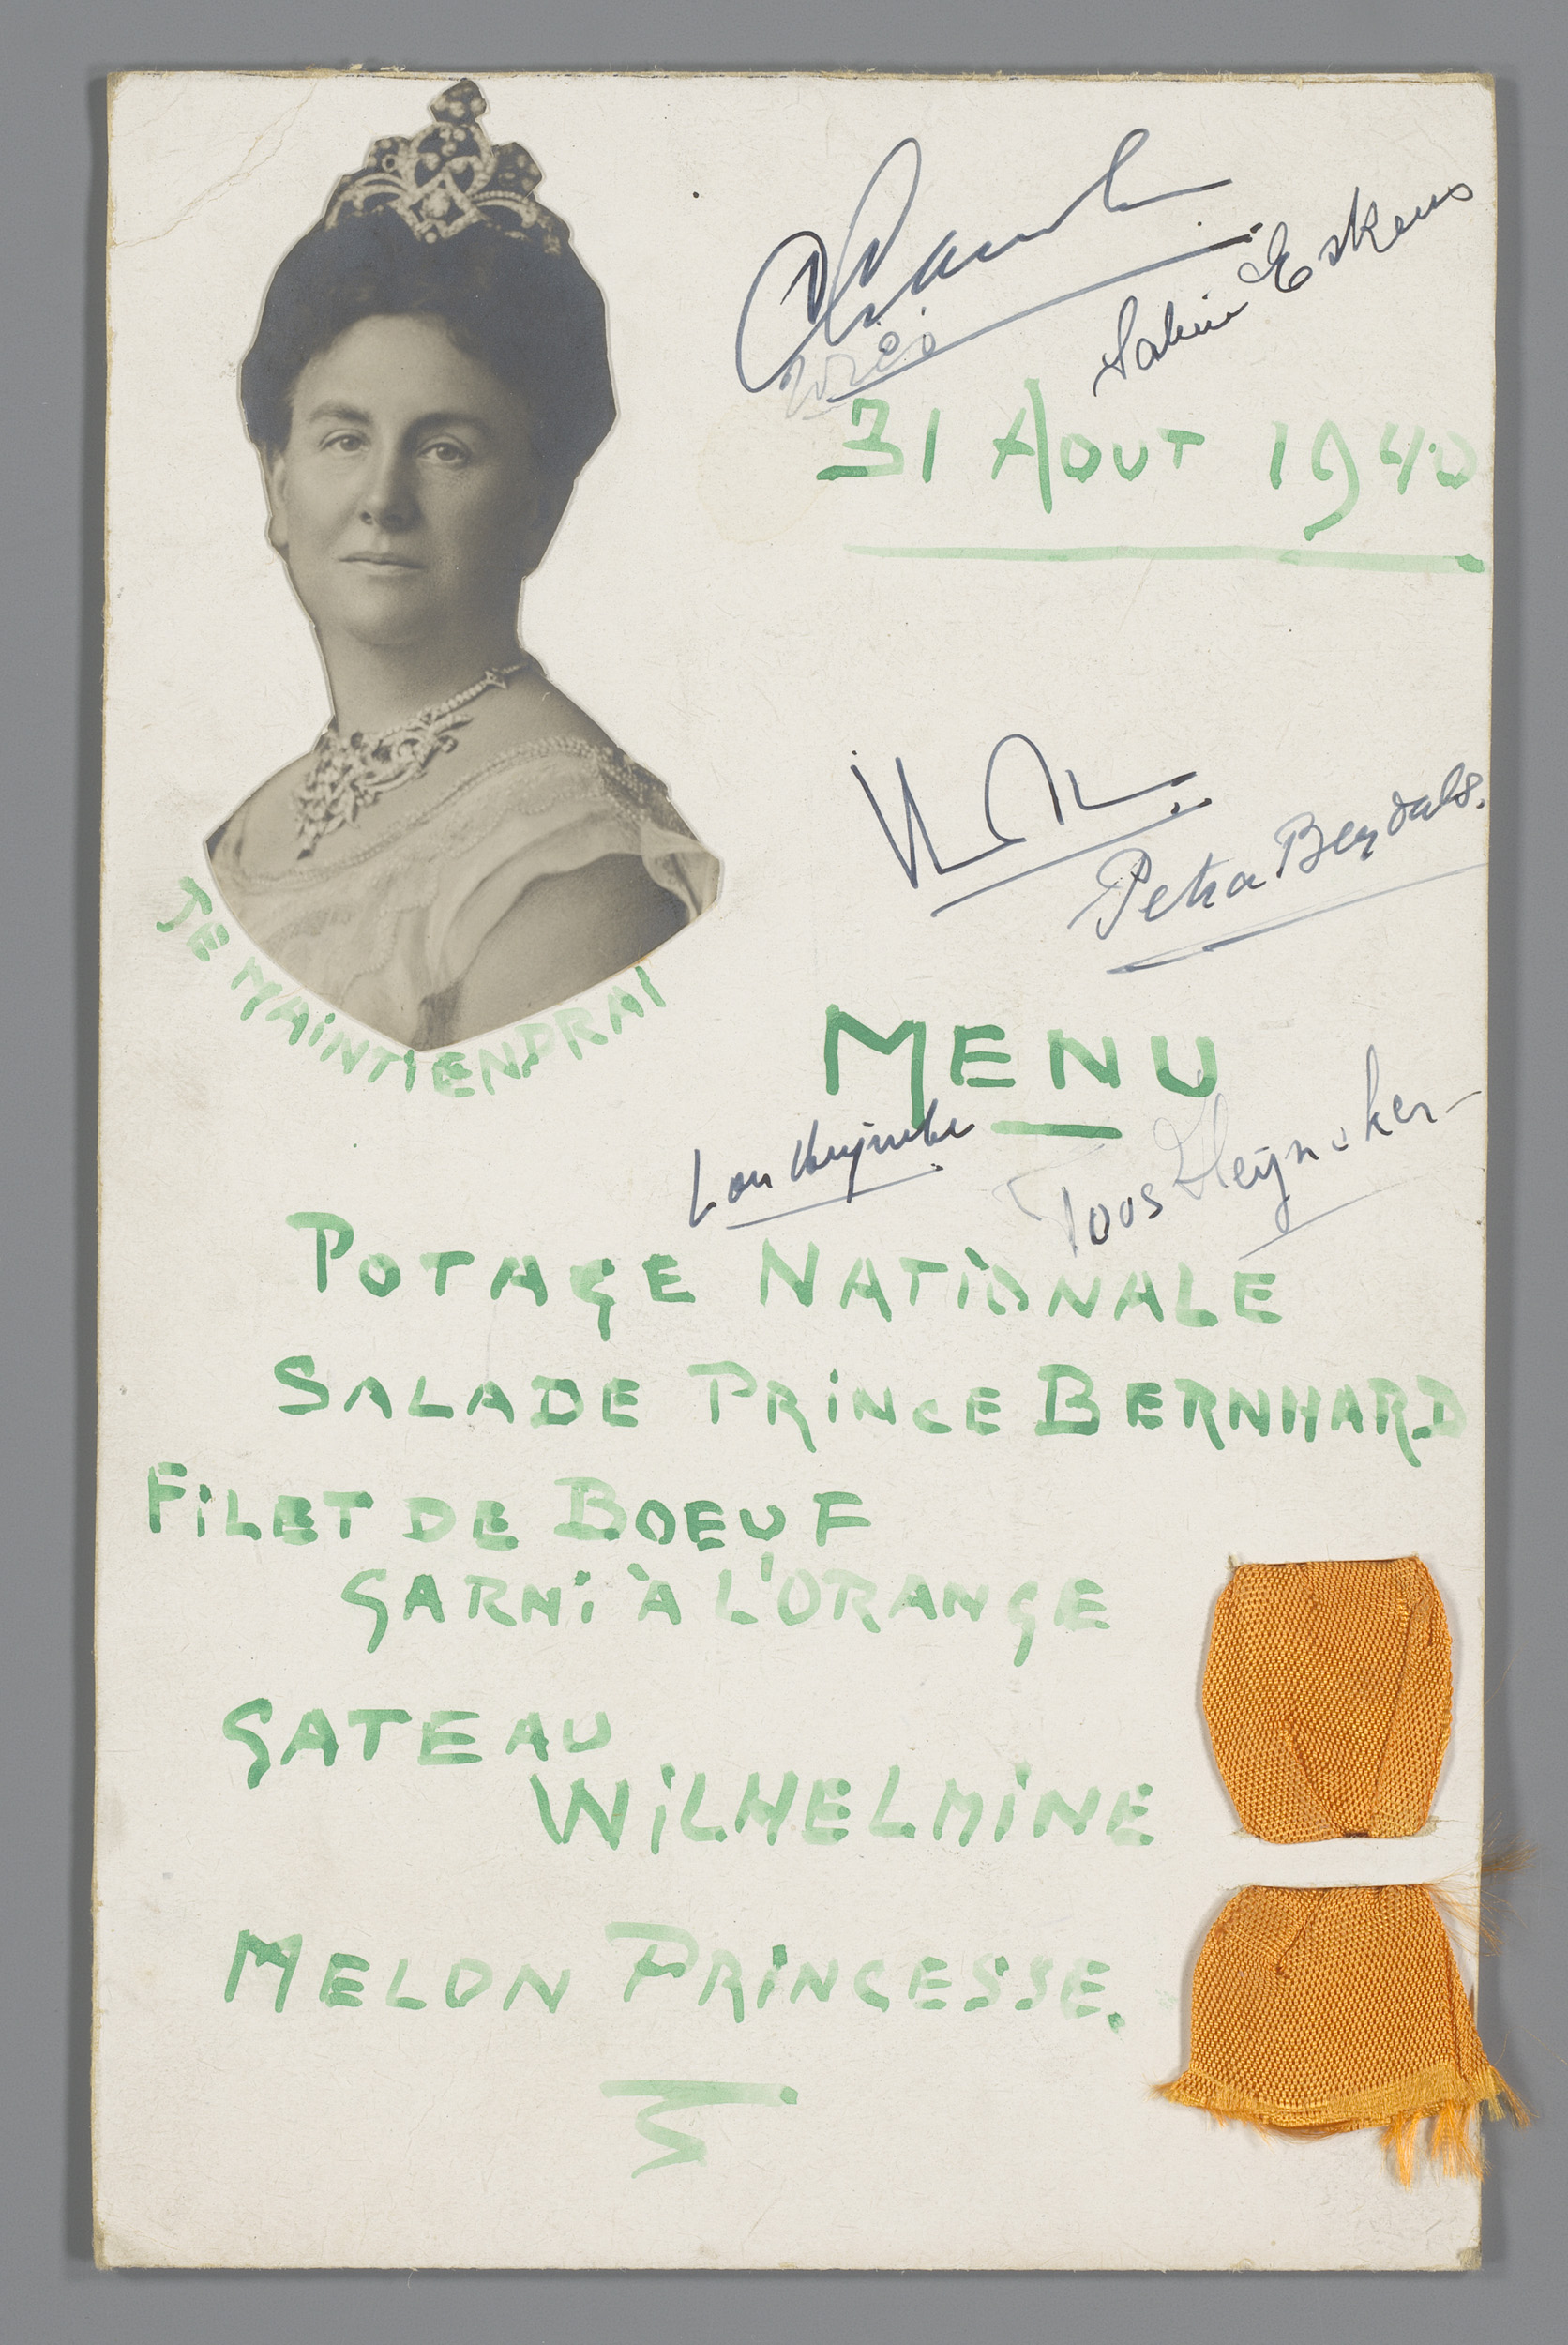 Sabine Eskens
31 AOUT 1940
Petra Berdals.
JE MAINTIENDRAI
MENU
Lou Heijneker
Toos Heijneker
POTAGE NATIONALE
SALADE PRINCE BERNHARD
FILET DE BOEUF
GARNI À L'ORANGE
GATEAU
WILHELMINE
MELON PRINCESSE.